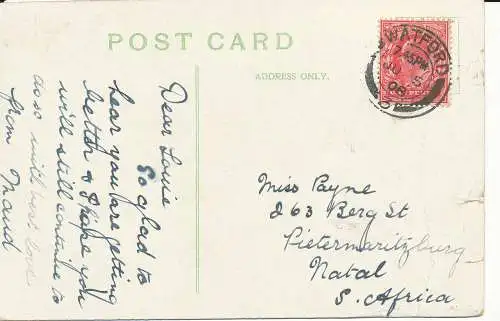 POST CARD
ADDRESS ONLY.
WATFORD
7.45PM
JU
06
Dear Louie
So glad to
hear you are getting
better & I hope you
will still continue to
do so with best love
from Maud
Miss Payne
263 Berg St
Pietermaritzburg
Natal
S. Africa